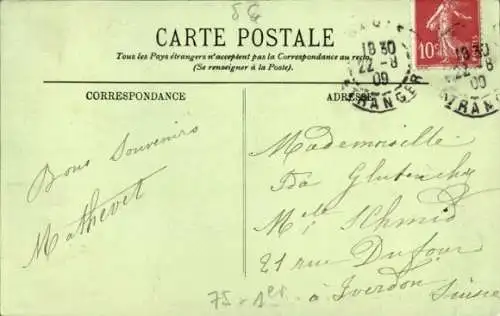 56
CARTE POSTALE
Tous les Pays étrangers n'acceptent pas la Correspondance au recto
(Se renseigner à la Poste.)
10c
18 30
22 - 8
09
ETRANGER
18 30
22 - 8
09
ETRANGER
CORRESPONDANCE
ADRESSE
Bons Souvenirs
Mathevet
Mademoiselle
Ida
Melle Schmid
21 rue Dufour
à Yverdon
Suisse
75 - 1er